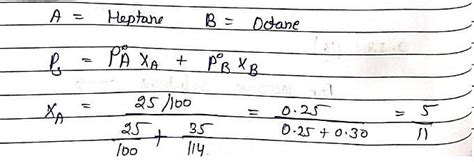 A = Heptane B = Octane
P_s = P°_A X_A + P°_B X_B
X_A = (25/100) / (25/100 + 35/114) = 0.25 / (0.25 + 0.30) = 5/11